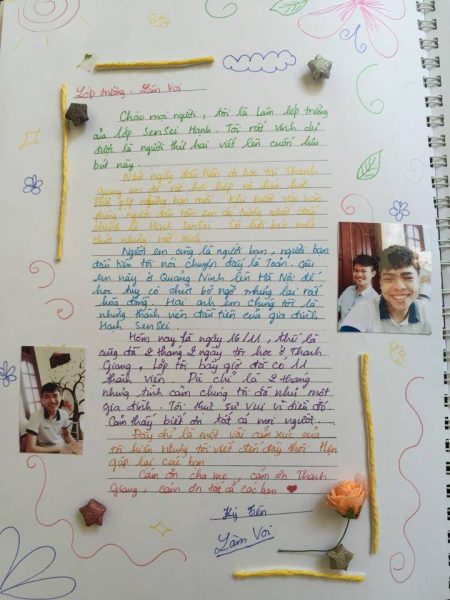 Lớp trưởng: Lâm Voi
Chào mọi người, tôi là Lâm lớp trưởng
của lớp SenSei Hạnh. Tôi rất vinh dự
được là người thứ hai viết lên cuốn lưu
bút này.
Nhớ ngày đầu tiên đi học tại Thanh
Giang em đã rất hồi hộp và háo hức
được gặp những bạn mới. Khi bước vào văn
người đầu tiên em ấn tượng nhất
chính là Hạnh SenSei. Cô
Người em cũng là người bạn, người bạn
đầu tiên tôi nói chuyện đấy là Toản. Cậu
em này ở Quảng Ninh lên Hà Nội để
học tuy có chút bỡ ngỡ nhưng lại rất
hòa đồng. Hai anh em chúng tôi là
những thành viên đầu tiên của gia đình
Hạnh SenSei.
Hôm nay là ngày 16/11, thế là
cũng đã 2 tháng 2 ngày tôi học ở Thanh
Giang, lớp tôi bây giờ đã có 11
thành viên. Dù chỉ là 2 tháng
nhưng tình cảm chúng tôi đã như một
gia đình. Tôi thực sự vui vì điều đó.
Cảm thấy biết ơn tất cả mọi người.
Đây chỉ là một vài cảm xúc của
tôi hiện nhưng tôi viết đến đây thôi. Hẹn
gặp lại các bạn
Cảm ơn cha mẹ, cảm ơn Thanh
Giang, cảm ơn tất cả các bạn ❤
Ký Tên
Lâm Voi